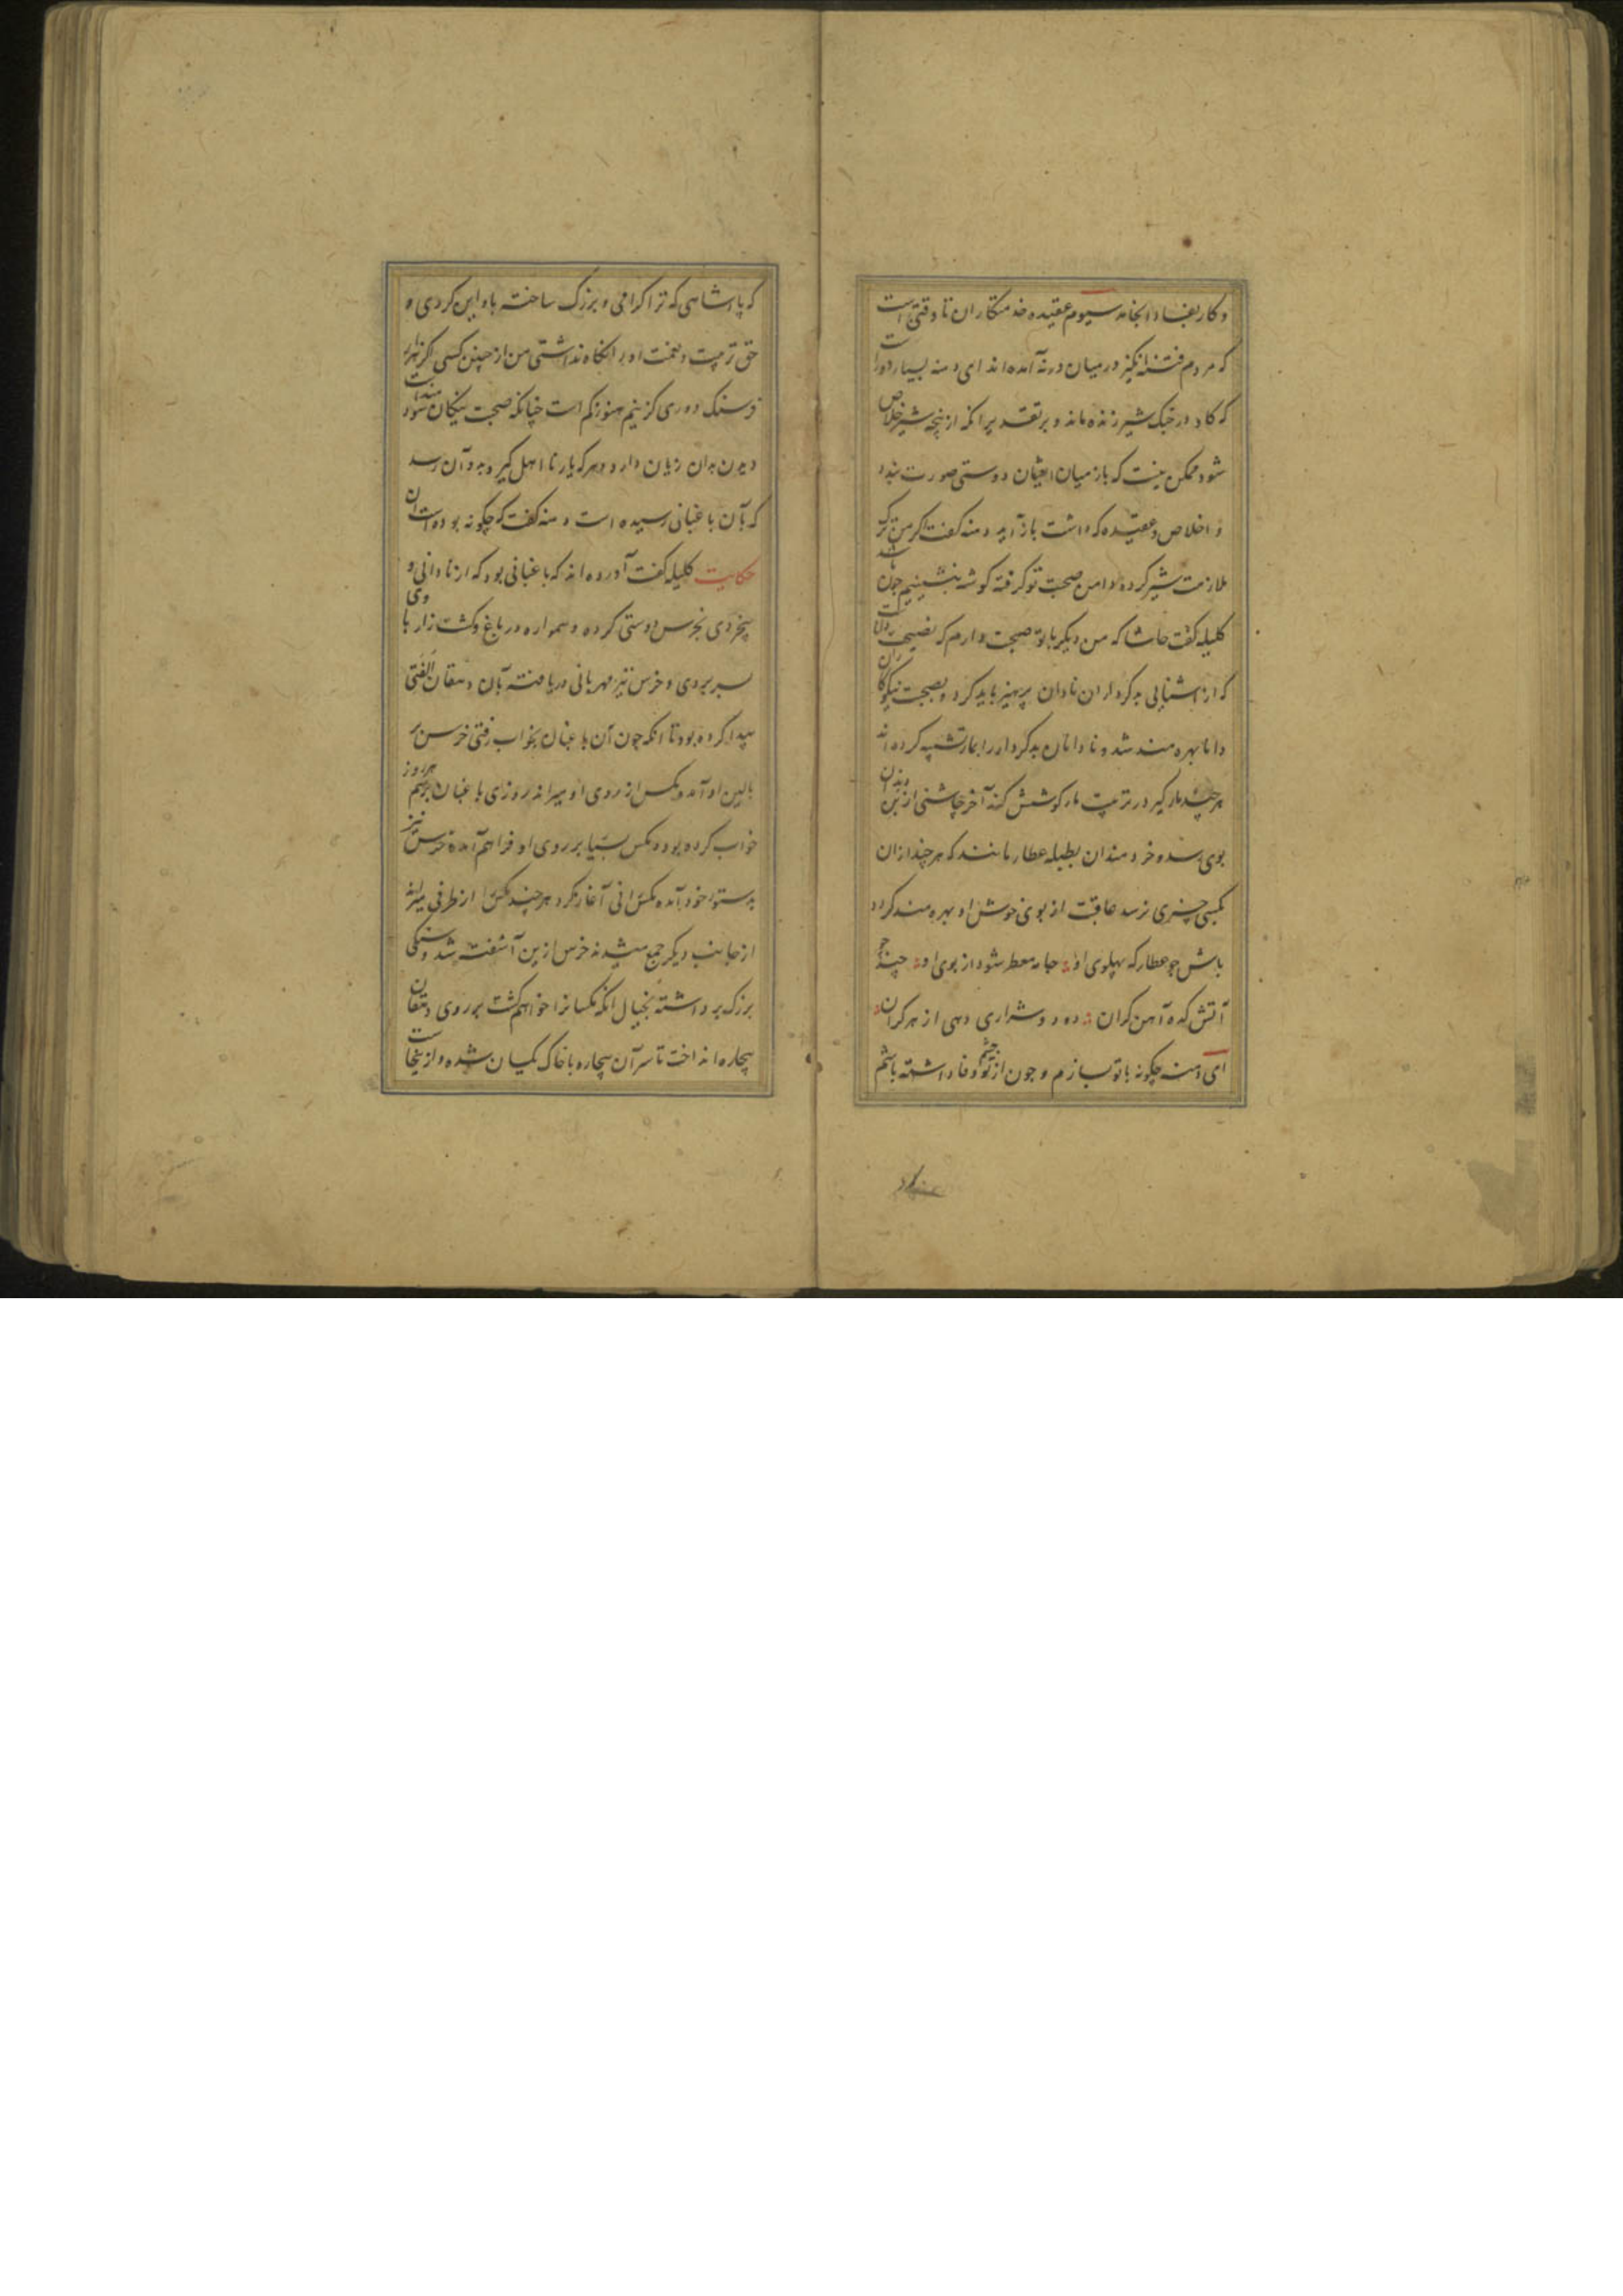 و کار بفساد انجامد سیوم عقیده خدمتکاران تا وقتی است
که مردم فتنه انگیز در میان درنه آمده اند ای دمنه بسیار دور است
که کاو در جنک شیر زنده ماند و بر تقدیر انکه از پنجه شیر خلاص
شود ممکن نیست که باز میان ایشان دوستی صورت بندد
و اخلاص و عقیده که داشت باز آید دمنه کفت اکر من ترک
ملازمت شیر کرده دامن صحبت تو کرفته کوشه بنشینیم چون باشد
کلیله کفت حاشا که من دیکر با تو صحبت دارم که نصیحت دانایانست
که از آشنایی بدکرداران نادان پرهیز باید کرد و بصحبت نیکوکاران
دانا بهره مند شد و نادانان بدکردار را بمار تشبیه کرده اند
هر چند مارکیر در تربیت مار کوشش کند آخر چاشنی از بن دندان
بوی رسد و خردمندان بطبله عطار مانند که هر چند ازان
بکسی چیزی نرسد عاقبت از بوی خوش او بهره مند کردد
باش چو عطار که پهلوی او جامه معطر شود از بوی او چند چو
آتش کده آهن کران دود و شراری دهی از هر کران
ای دمنه چکونه با تو سازم و چون از تو چشم وفا داشته باشم
که پادشاهی که ترا کرامی و بزرک ساخته باو این کردی و
حق تربیت و نعمت او را نکاه نداشتی من از چنین کسی اکر هزار
فرسنک دوری کزینم هنوز کم است چنانکه صحبت نیکان سودمندست
دیدن بدان زیان دارد و هر که یار نا اهل کیرد بدو آن رسد
که بآن باغبانی رسیده است دمنه کفت که چکونه بوده است آن
حکایت کلیله کفت آورده اند که باغبانی بود که از نادانی و
بیخردی بخرس دوستی کرده و همواره در باغ و کشت زار با وی
بسر بردی و خرس نیز مهربانی دریافته بآن دهقان الفتی
پیدا کرده بود تا انکه چون آن باغبان بخواب رفتی خرس بر
بالین او آمد و مکس از روی او میراند روزی باغبان برسم هر روز
خواب کرده بود و مکس بسیار بر روی او فراهم آمده خرس نیز
بدستور خود آمده مکس رانی آغاز کرد هر چند مکس را از طرفی میراند
از جانب دیکر جمع میشدند خرس ازین آشفته شد و سنکی
بزرک برداشته بخیال انکه مکسانرا خواهم کشت بر روی دهقان
بیچاره انداخت تا سر آن بیچاره با خاک یکسان شده و از ینجاست